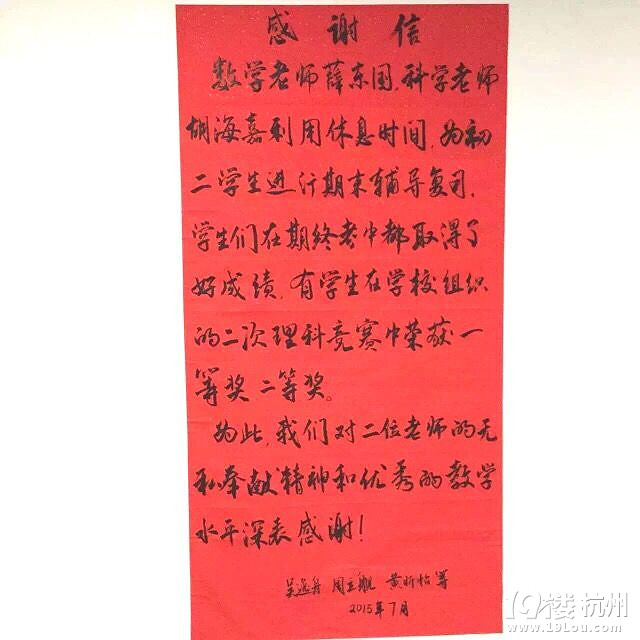 感谢信
数学老师薛东国,科学老师
胡海嘉利用休息时间,为初
二学生进行期末辅导复习,
学生们在期终考中都取得了
好成绩,有学生在学校组织
的二次理科竞赛中荣获一
等奖二等奖。
为此,我们对二位老师的无
私奉献精神和优秀的教学
水平深表感谢!
吴逸舟 周 黄昕怡等
2015年7月
19楼杭州
www.19lou.com